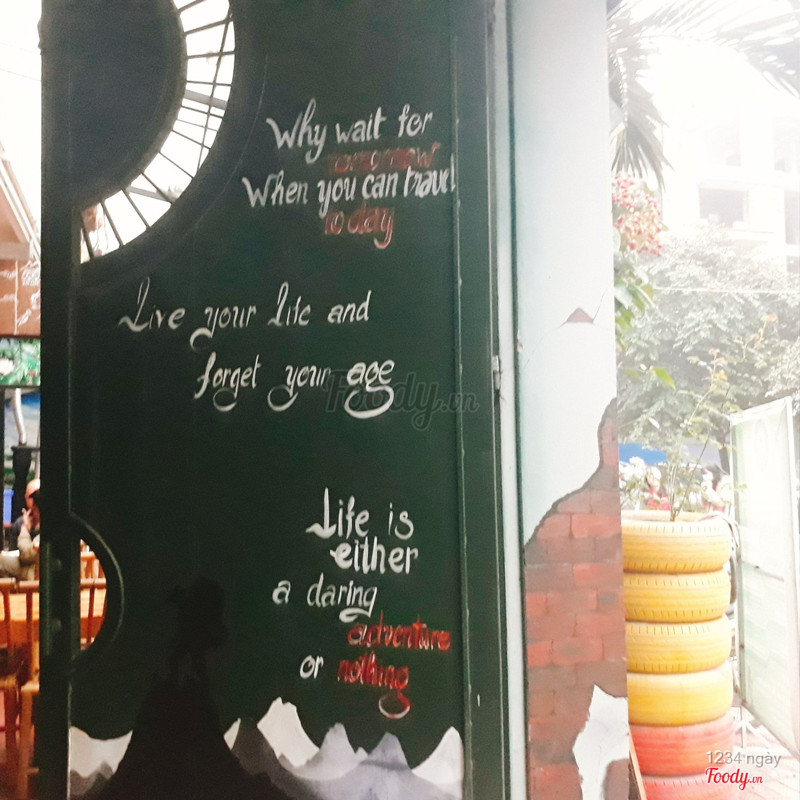 Why wait for
tomorrow
When you can travel
to day
Live your life and
forget your age
Foody.vn
Life is
either
a daring
adventure
or nothing
1234 ngày
Foody.vn